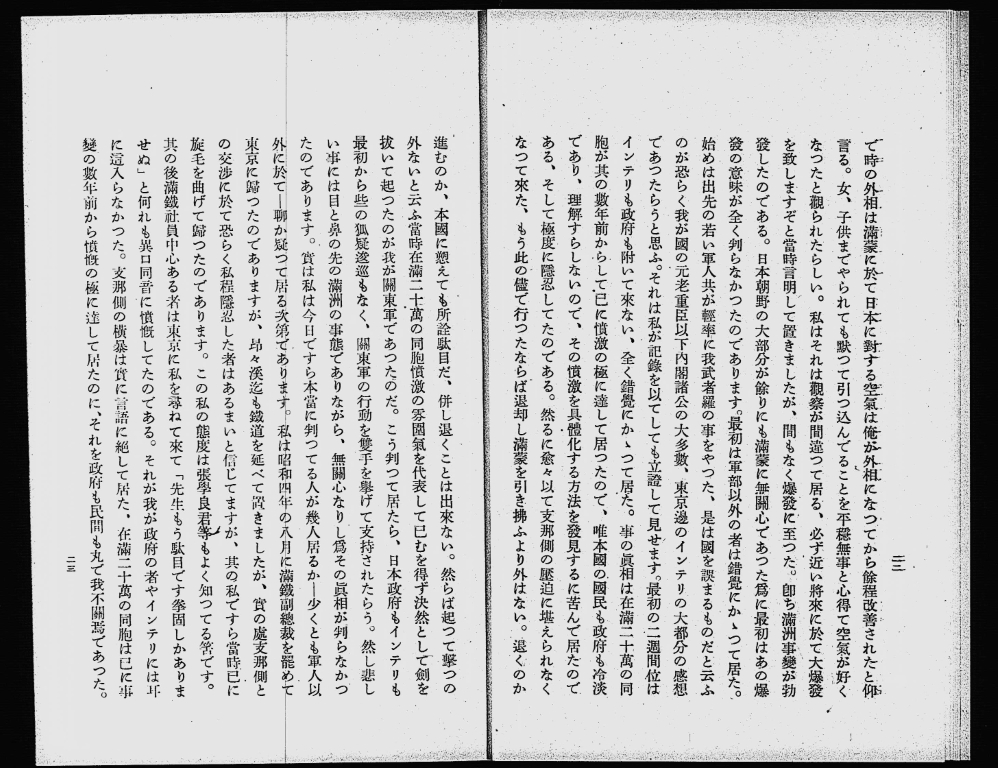 で時の外相は滿蒙に於て日本に對する空氣は俺が外相になつてから餘程改善されたと仰
言る。女、子供までやられても默つて引つ込んでることを平穩無事と心得て空氣が好く
なつたと觀られたらしい。私はそれは觀察が間違つて居る、必ず近い將來に於て大爆發
を致しますぞと當時言明して置きましたが、間もなく爆發に至つた。卽ち滿洲事變が勃
發したのである。日本朝野の大部分が餘りにも滿蒙に無關心であつた爲に最初はあの爆
發の意味が全く判らなかつたのであります。最初は軍部以外の者は錯覺にかゝつて居た。
始めは出先の若い軍人共が輕率に我武者羅の事をやつた、是は國を誤まるものだと云ふ
のが恐らく我が國の元老重臣以下內閣諸公の大多數、東京邊のインテリの大都分の感想
であつたらうと思ふ。それは私が記錄を以てしても立證して見せます。最初の二週間位は
インテリも政府も附いて來ない、全く錯覺にかゝつて居た。事の眞相は在滿二十萬の同
胞が其の數年前からして已に憤激の極に達して居つたので、唯本國の國民も政府も冷淡
であり、理解すらしないので、その憤激を具體化する方法を發見するに苦んで居たので
ある、そして極度に隱忍してたのである。然るに愈々以て支那側の壓迫に堪えられなく
なつて來た、もう此の儘で行つたならば退却し滿蒙を引き拂ふより外はない。退くのか
二二
進むのか、本國に愬えても所詮駄目だ、併し退くことは出來ない。然らば起つて擊つの
外ないと云ふ當時在滿二十萬の同胞憤激の雰圍氣を代表して已むを得ず決然として劍を
拔いて起つたのが我が關東軍であつたのだ。こう判つて居たら、日本政府もインテリも
最初から些の狐疑逡巡もなく、關東軍の行動を雙手を擧げて支持されたらう。然し悲し
い事には目と鼻の先の滿洲の事態でありながら、無關心なりし爲その眞相が判らなかつ
たのであります。實は私は今日ですら本當に判つてる人が幾人居るか―少くとも軍人以
外に於て―聊か疑つて居る次第であります。私は昭和四年の八月に滿鐵副總裁を罷めて
東京に歸つたのでありますが、昂々溪迄も鐵道を延べて置きましたが、實の處支那側と
の交涉に於て恐らく私程隱忍した者はあるまいと信じてますが、其の私ですら當時已に
旋毛を曲げて歸つたのであります。この私の態度は張學良君等もよく知つてる筈です。
其の後滿鐵社員中心ある者は東京に私を尋ねて來て「先生もう駄目です拳固しかありま
せぬ」と何れも異口同音に憤慨してたのである。それが我が政府の者やインテリには耳
に這入らなかつた。支那側の橫暴は實に言語に絕して居た、在滿二十萬の同胞は已に事
變の數年前から憤慨の極に達して居たのに、それを政府も民間も丸で我不關焉であつた。
二三